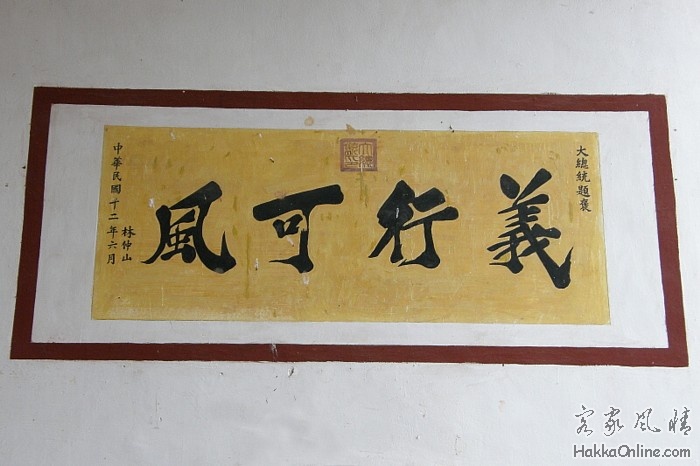 大總統題褒
義行可風
中華民國十二年六月
林仲山
客家風情
HakkaOnline.com